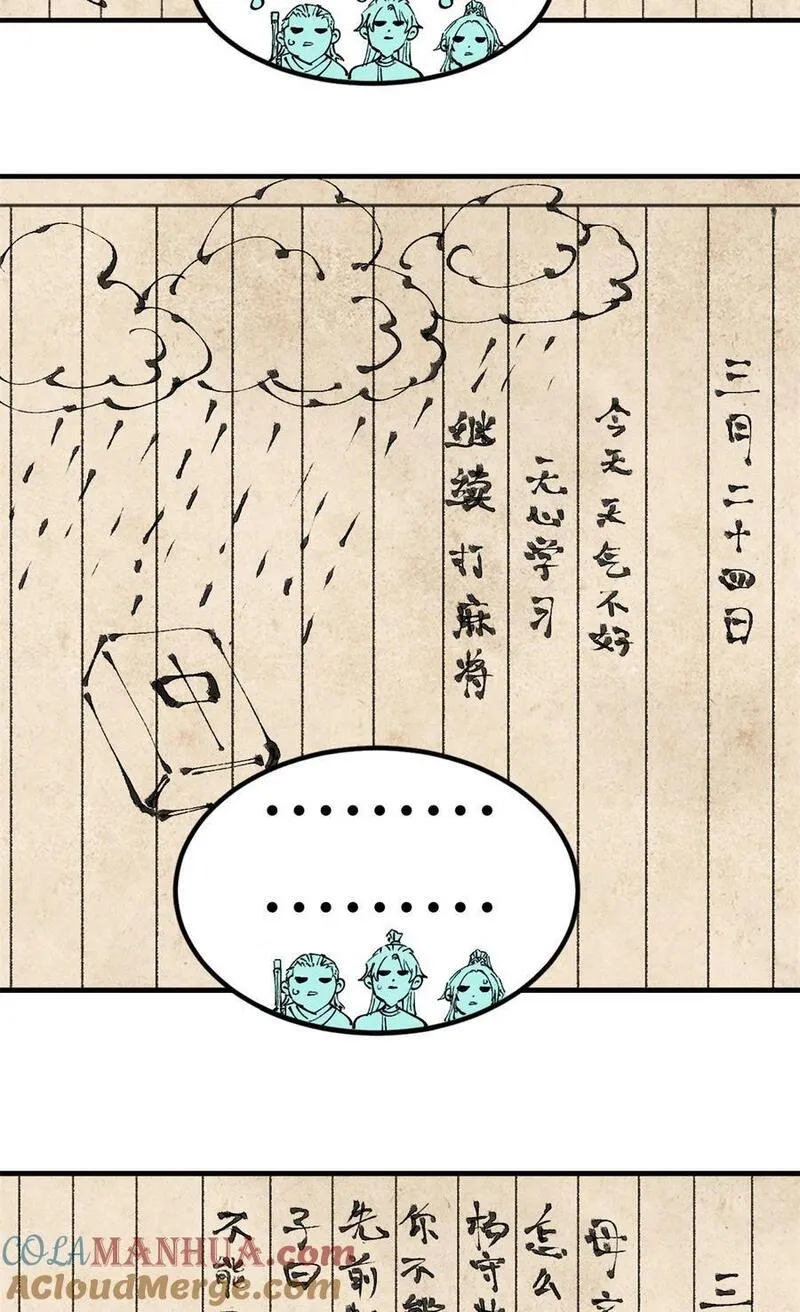 三月二十四日
今天天气不好
无心学习
继续打麻将
中
.........
.........
三
母
怎么
杨守
你不能
先前
子曰
不能
COLAMANHUA.com
AcloudMerge.com